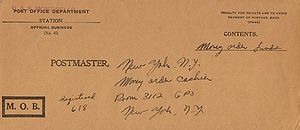 POST OFFICE DEPARTMENT
STATION
OFFICIAL BUSINESS
(No. 6)
PENALTY FOR PRIVATE USE TO AVOID
PAYMENT OF POSTAGE, $300.
CONTENTS.
Money order funds
POSTMASTER, New York, N.Y.
Money order cashier
Registered Room 3112 GPO
618 New York, N.Y.
M. O. B.